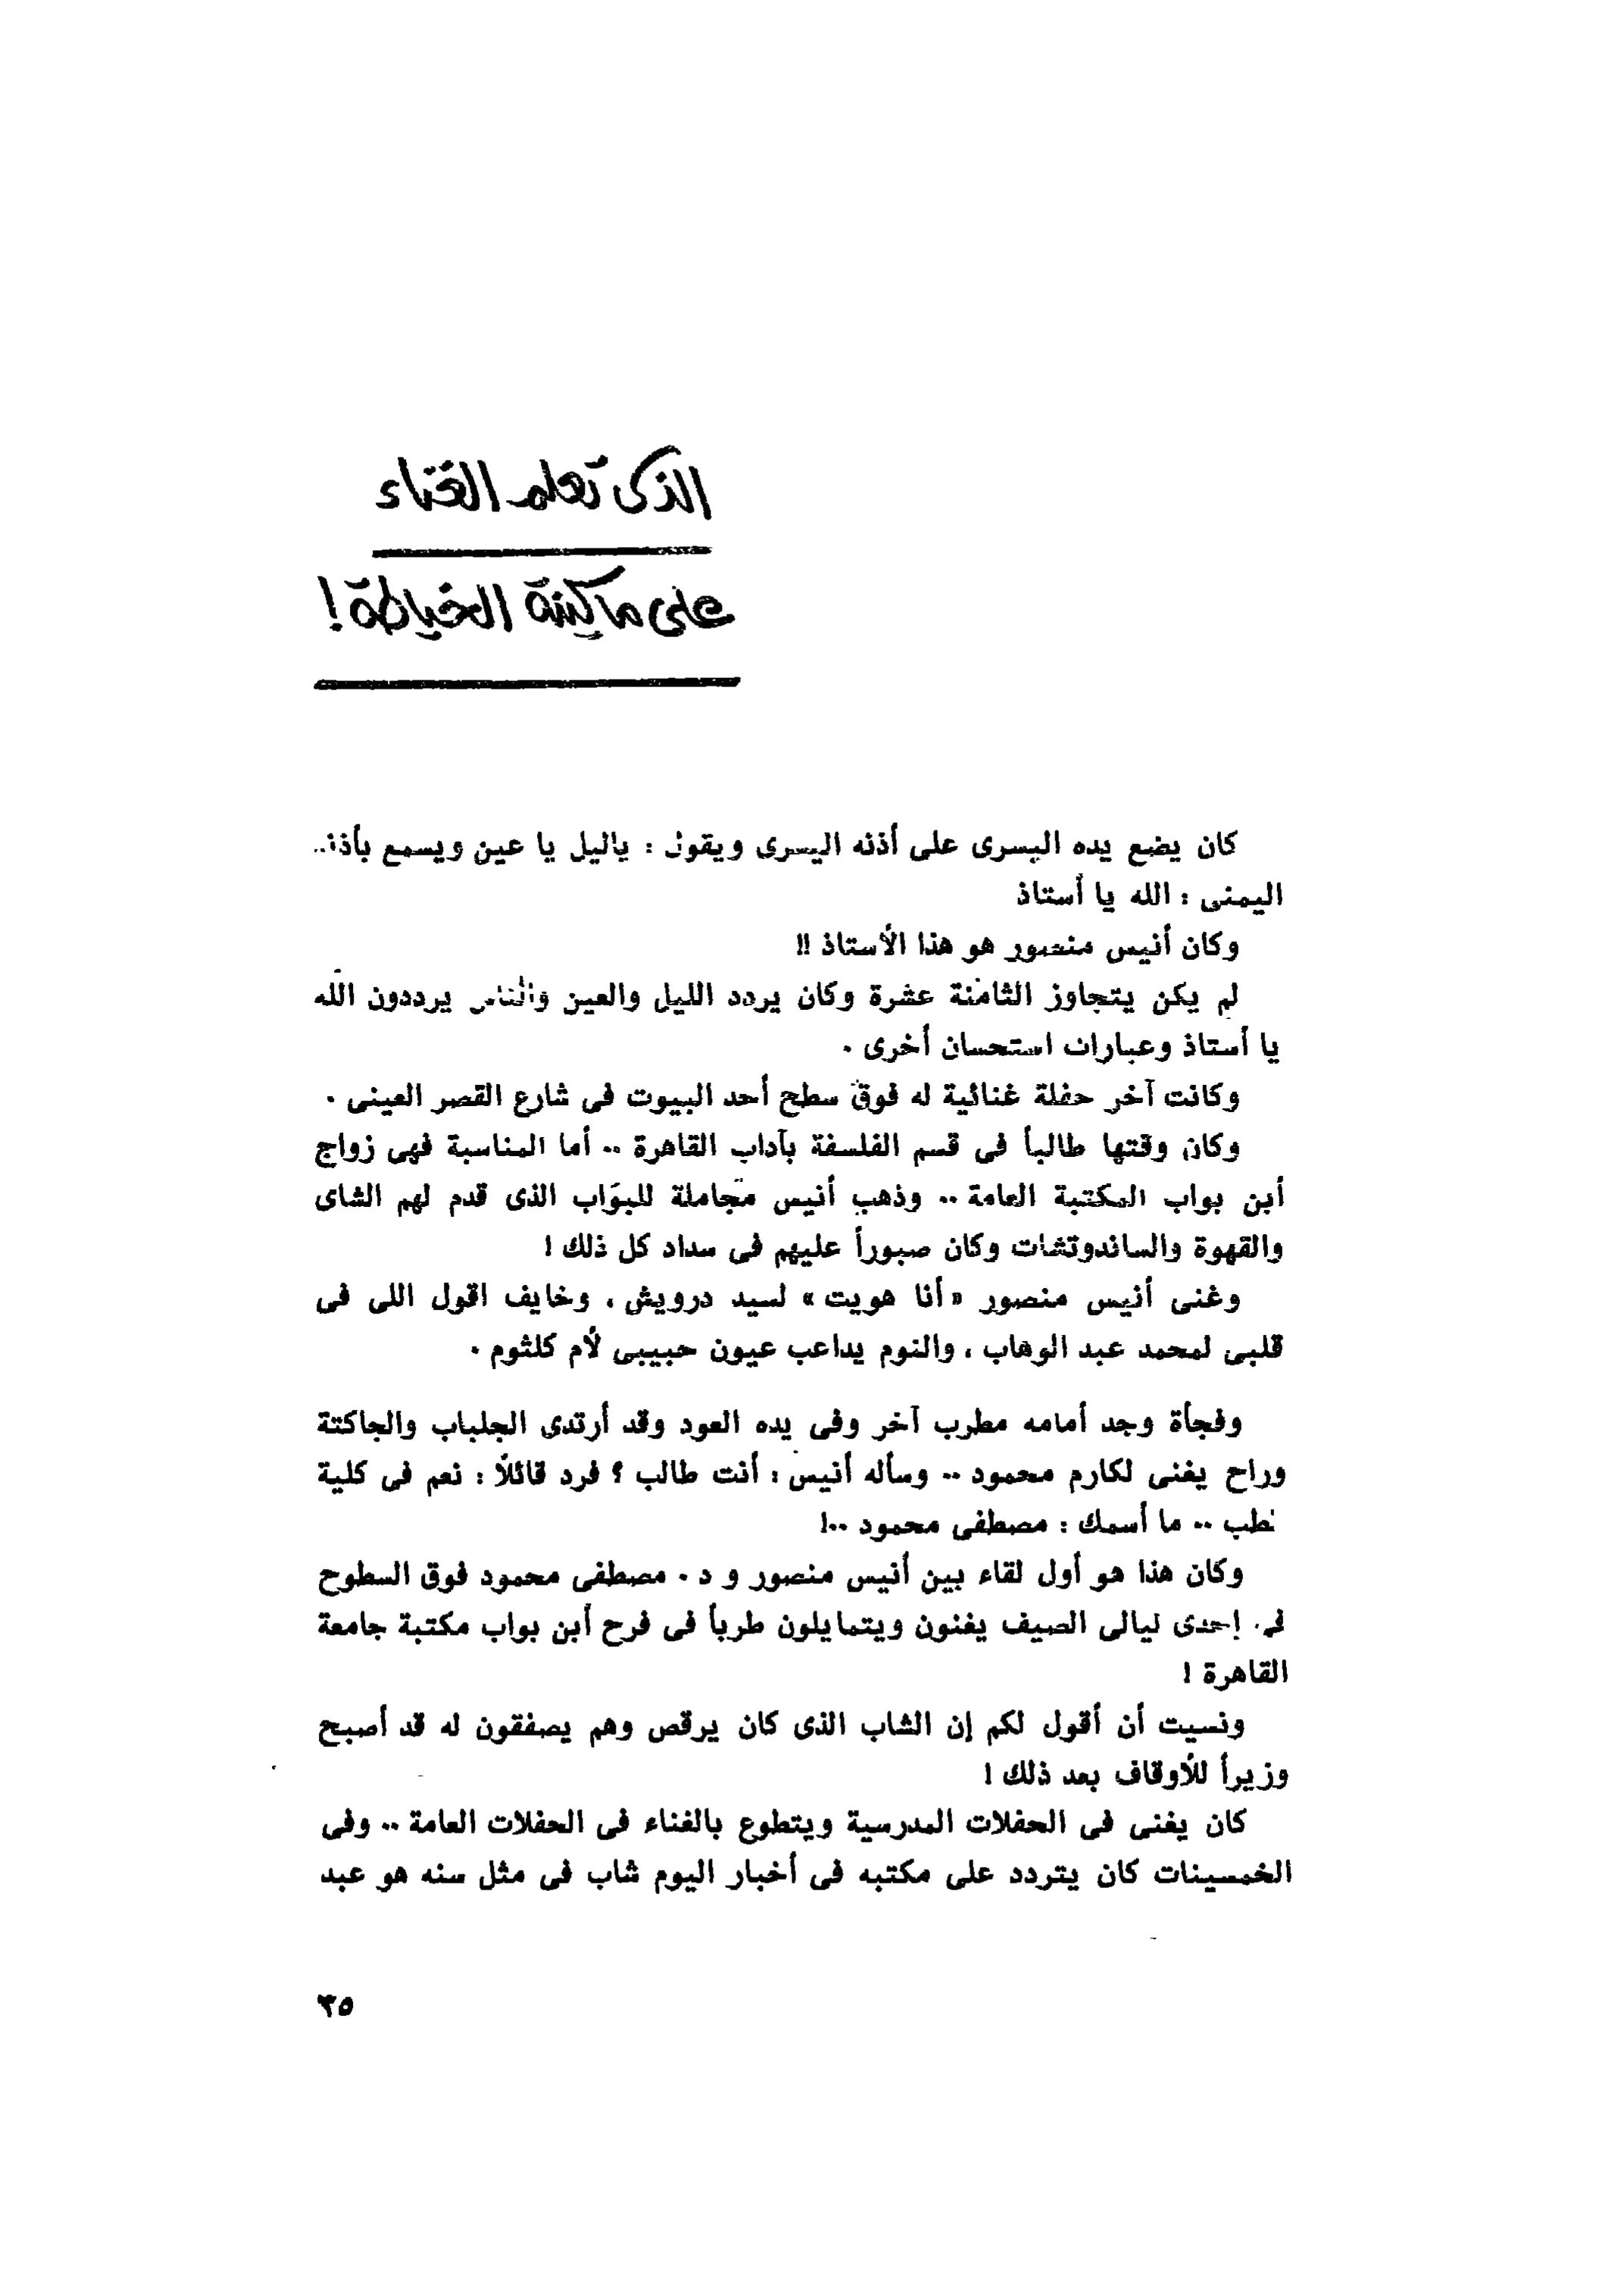 الذى تعلم الغناء
على ماكينة الخياطة !
كان يضع يده اليسرى على أذنه اليسرى ويقول : ياليل يا عين ويسمع
اليمنى : الله يا أستاذ
وكان أنيس منصور هو هذا الأستاذ !!
لم يكن يتجاوز الثامنة عشرة وكان يردد الليل والعين والناس يرددون الله
يا أستاذ وعبارات استحسان أخرى .
وكانت آخر حفلة غنائية له فوق سطح أحد البيوت فى شارع القصر العينى .
وكان وقتها طالباً فى قسم الفلسفة بآداب القاهرة .. أما المناسبة فهى زواج
أبن بواب المكتبة العامة .. وذهب أنيس مجاملة للبواب الذى قدم لهم الشاى
والقهوة والساندوتشات وكان صبوراً عليهم فى سداد كل ذلك !
وغنى أنيس منصور « أنا هويت » لسيد درويش ، وخايف اقول اللى فى
قلبى لمحمد عبد الوهاب ، والنوم يداعب عيون حبيبى لأم كلثوم .
وفجأة وجد أمامه مطرب آخر وفى يده العود وقد أرتدى الجلباب والجاكتة
وراح يغنى لكارم محمود .. وسأله أنيس : أنت طالب ؟ فرد قائلاً : نعم فى كلية
طب .. ما أسمك : مصطفى محمود ..!
وكان هذا هو أول لقاء بين أنيس منصور و د . مصطفى محمود فوق السطوح
فى إحدى ليالى الصيف يغنون ويتمايلون طرباً فى فرح أبن بواب مكتبة جامعة
القاهرة !
ونسيت أن أقول لكم إن الشاب الذى كان يرقص وهم يصفقون له قد أصبح
وزيراً للأوقاف بعد ذلك !
كان يغنى فى الحفلات المدرسية ويتطوع بالغناء فى الحفلات العامة .. وفى
الخمسينات كان يتردد على مكتبه فى أخبار اليوم شاب فى مثل سنه هو عبد
٣٥